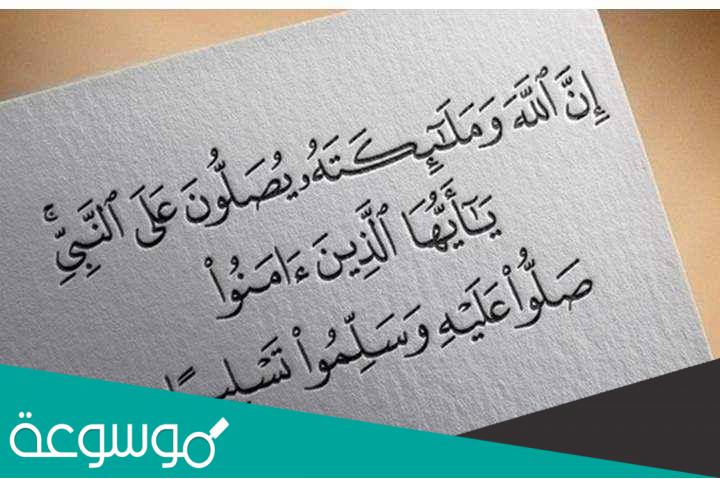 إِنَّ ٱللَّهَ وَمَلَـٰٓئِكَتَهُۥ يُصَلُّونَ عَلَى ٱلنَّبِىِّ ۚ
يَـٰٓأَيُّهَا ٱلَّذِينَ ءَامَنُوا۟
صَلُّوا۟ عَلَيْهِ وَسَلِّمُوا۟ تَسْلِيمًا
موسوعة